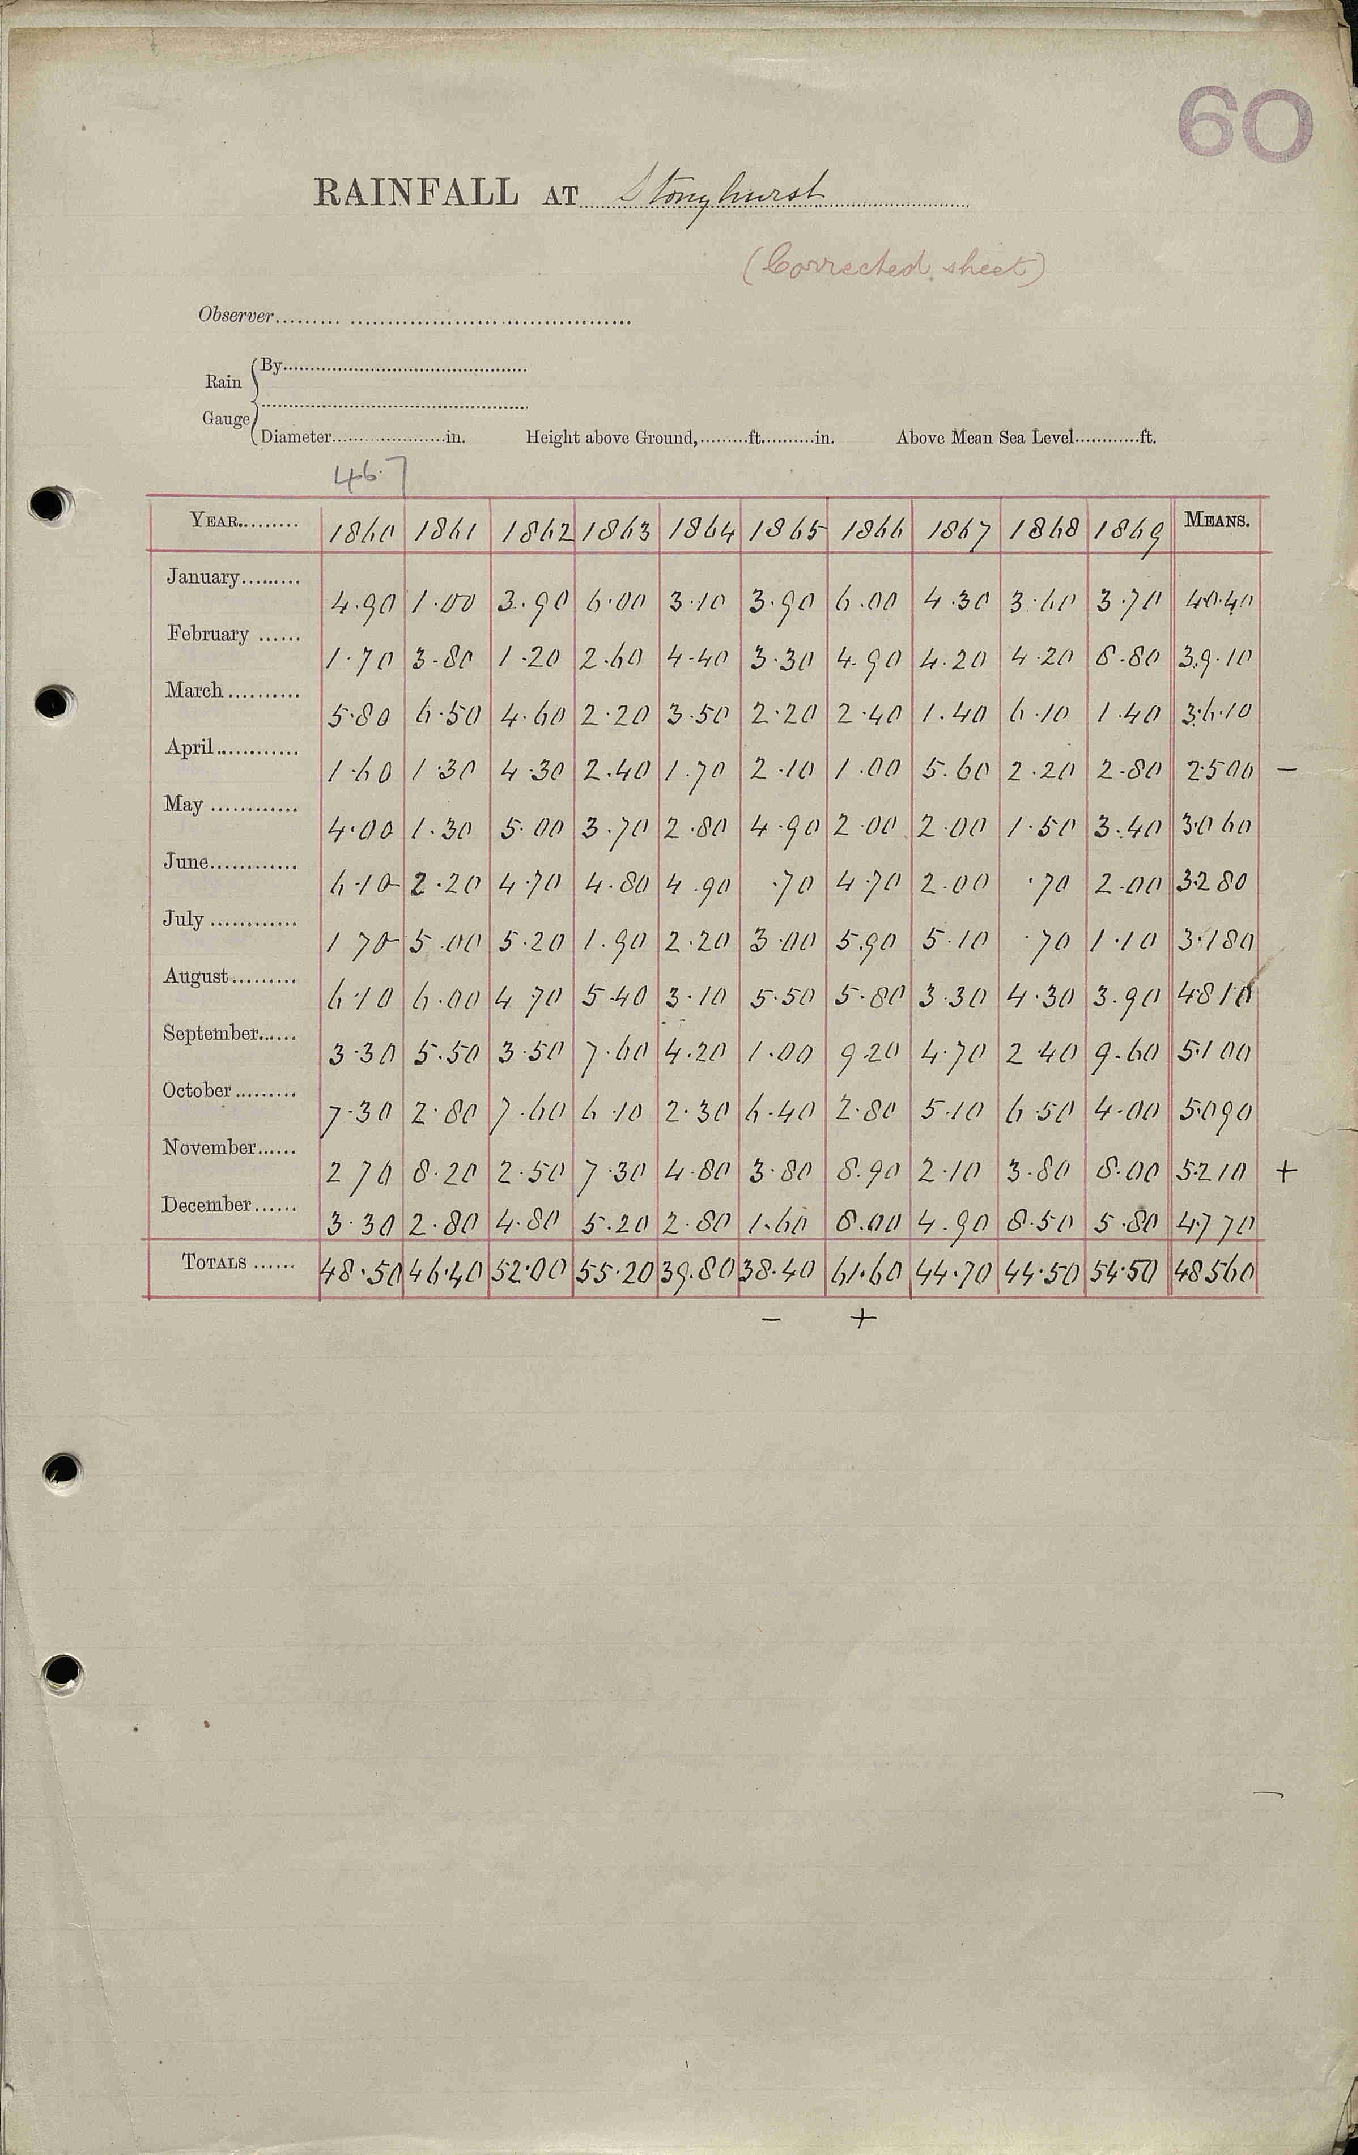 60
RAINFALL AT Stonyhurst
(Corrected sheet)
Observer
Rain Gauge
By
Diameter in. Height above Ground, ft. in. Above Mean Sea Level ft.
46.7
YEAR 1860 1861 1862 1863 1864 1865 1866 1867 1868 1869 MEANS.
January 4.90 1.00 3.90 6.00 3.10 3.90 6.00 4.30 3.60 3.70 40.40
February 1.70 3.80 1.20 2.60 4.40 3.30 4.90 4.20 4.20 8.80 39.10
March 5.80 6.50 4.60 2.20 3.50 2.20 2.40 1.40 6.10 1.40 36.10
April 1.60 1.30 4.30 2.40 1.70 2.10 1.00 5.60 2.20 2.80 25.00 –
May 4.00 1.30 5.00 3.70 2.80 4.90 2.00 2.00 1.50 3.40 30.60
June 6.10 2.20 4.70 4.80 4.90 .70 4.70 2.00 .70 2.00 32.80
July 1.70 5.00 5.20 1.90 2.20 3.00 5.90 5.10 .70 1.10 31.80
August 6.10 6.00 4.70 5.40 3.10 5.50 5.80 3.30 4.30 3.90 48.10
September 3.30 5.50 3.50 7.60 4.20 1.00 9.20 4.70 2.40 9.60 51.00
October 7.30 2.80 7.60 6.10 2.30 6.40 2.80 5.10 6.50 4.00 50.90
November 2.70 8.20 2.50 7.30 4.80 3.80 8.90 2.10 3.80 8.00 52.10 +
December 3.30 2.80 4.80 5.20 2.80 1.60 8.00 4.90 8.50 5.80 47.70
TOTALS 48.50 46.40 52.00 55.20 39.80 38.40 61.60 44.70 44.50 54.50 485.60
– +